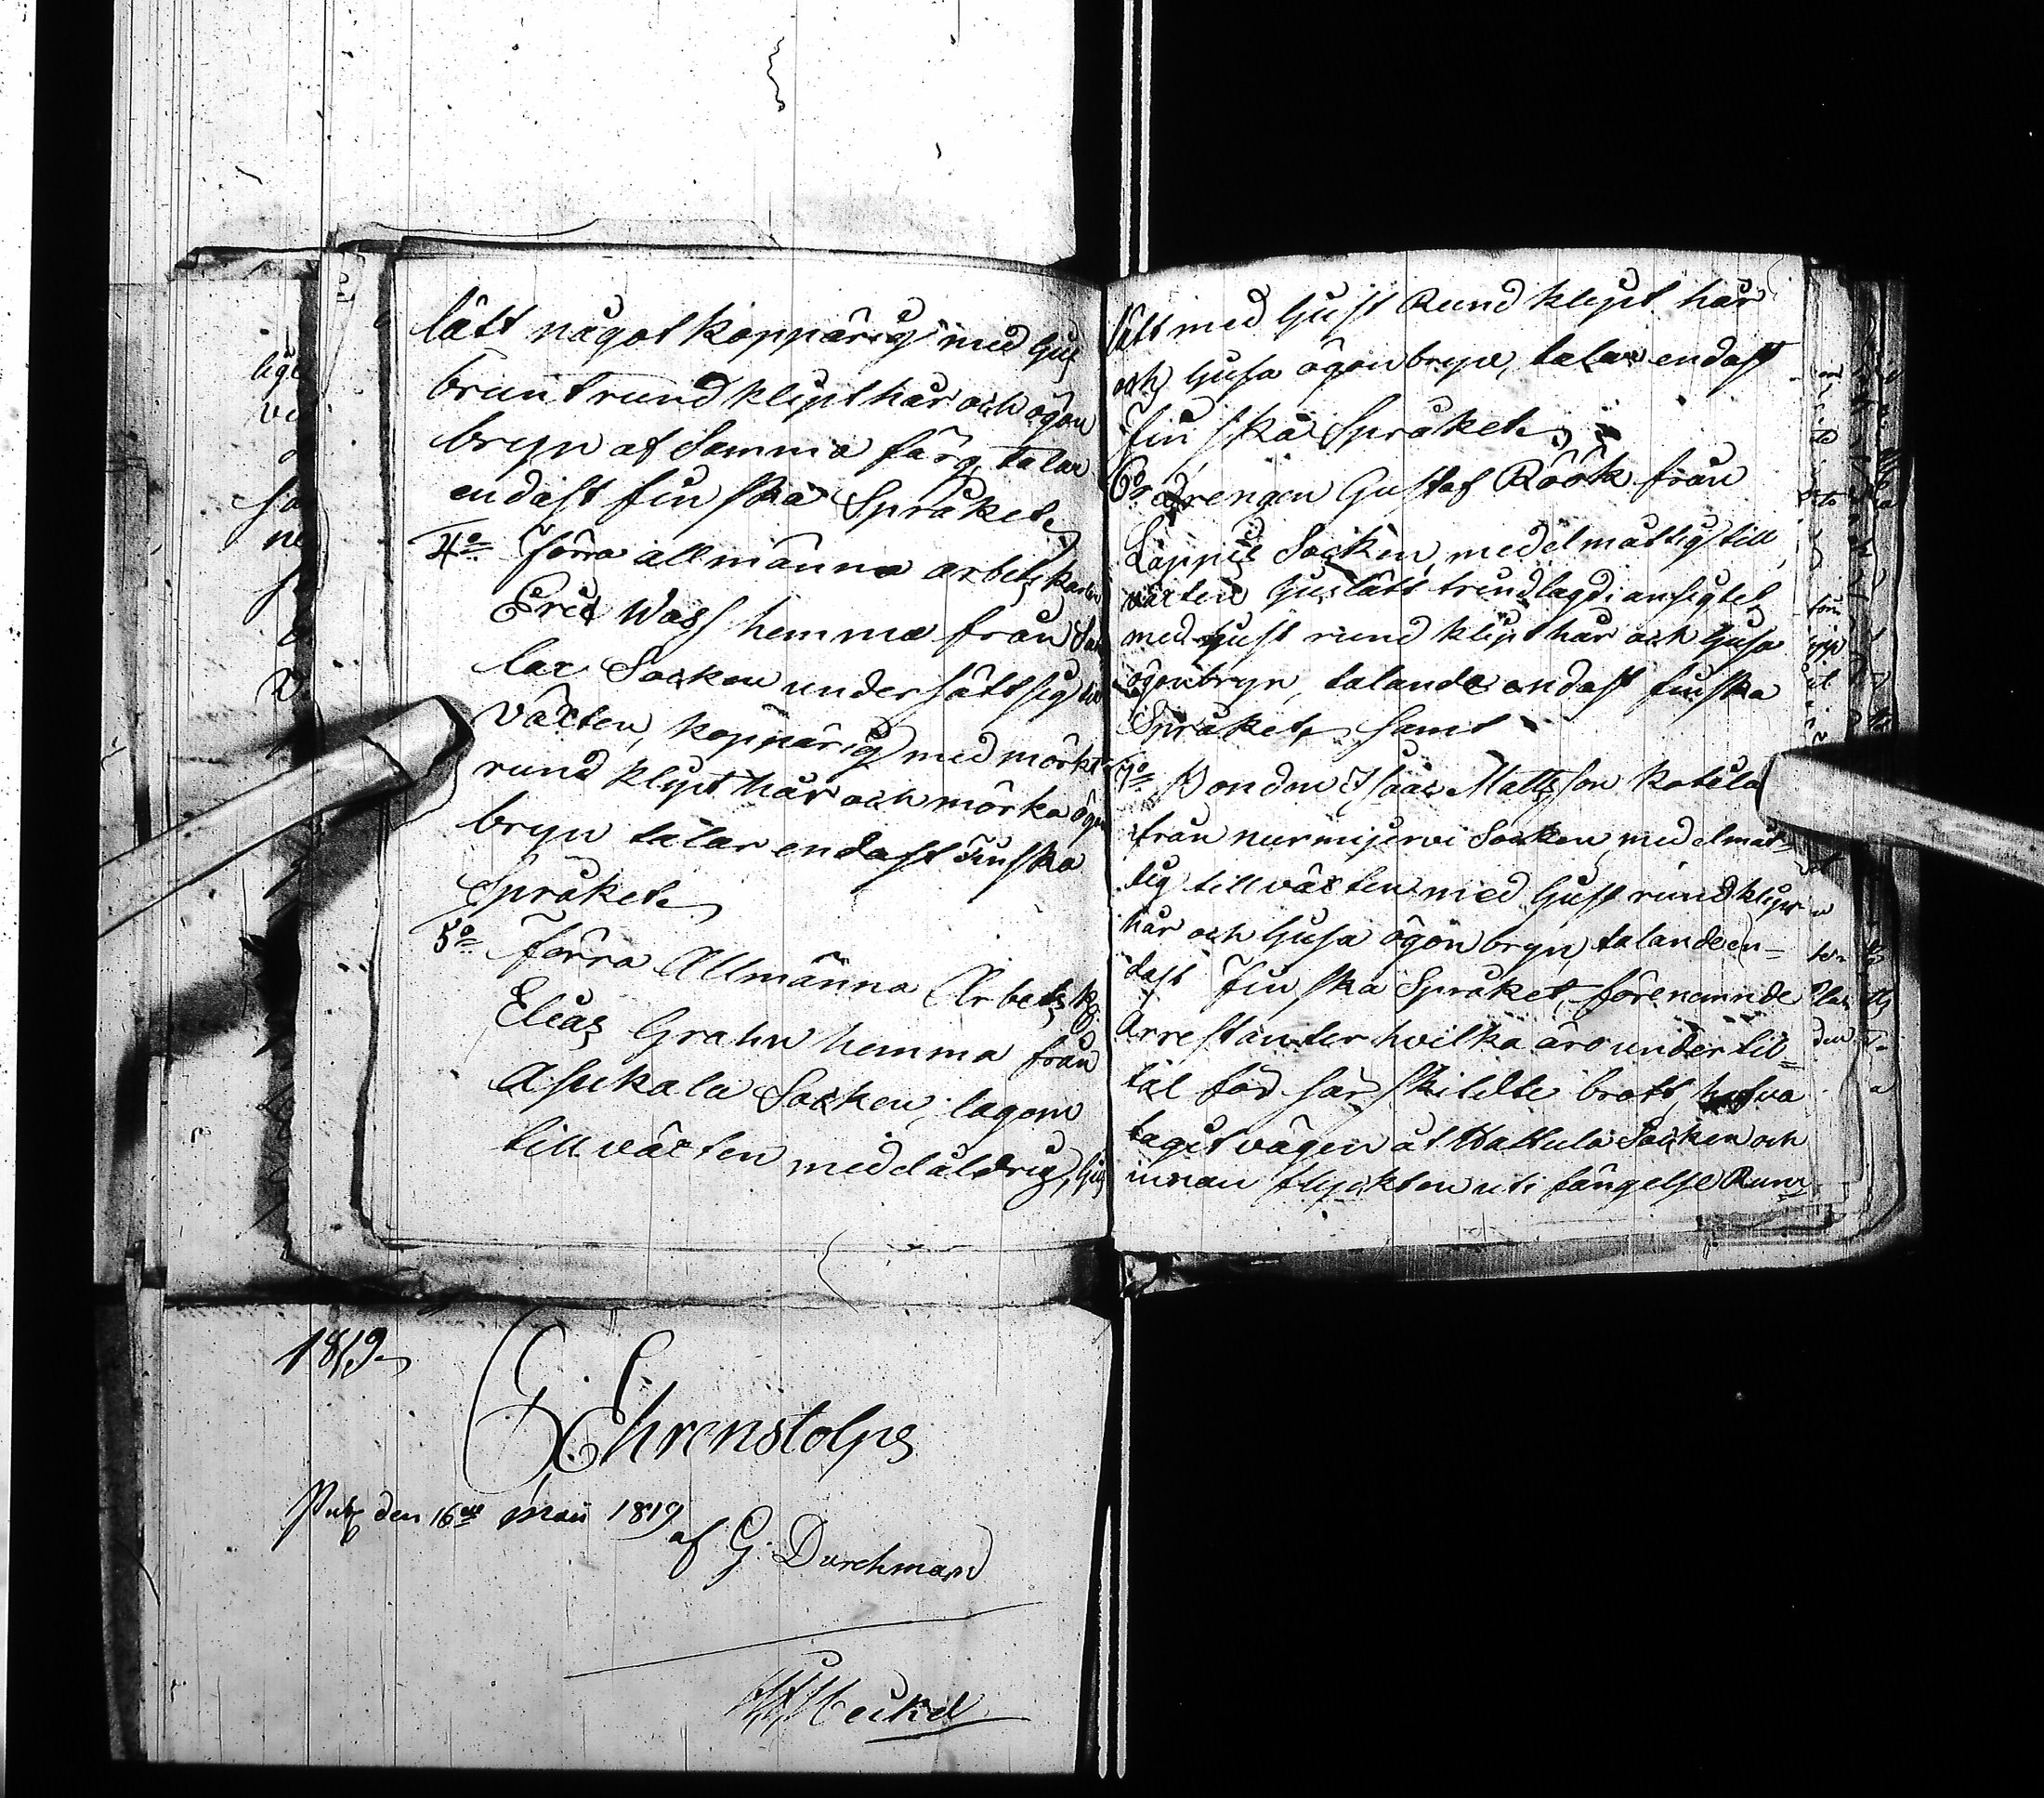 lätt något koppärig med ljus
brunt rund klipt hår och ögon
bryn af Samma färg, talar
endast finska Språket
4o förra allmänna arbetskarlen
Eric Wass hemma från
lax Socken undersättsig till
växten, koppärig med mörkt
rund klipt hår och mörka ögon
bryn talar endast finska
Språket
5o förra Allmänna Arbets k
Elias Grahn hemma från
Asikala Socken, lagom
till växten medelåldrig, ljus
lätt med ljust Rund klipt hår
och ljusa ögonbryn, talar endast
finska Språket
6o Drengen Gustaf Röök från
Loppis Socken, medelmåttig till
växten ljuslätt trindlagd i ansigtet
med ljust rund klipt hår och ljusa
ögonbryn, talande endast finska
Språket, samt
7o Bonden Isaac Mattsson Kotila
från nurmijervi Socken, medelmåt=
tig till växten med ljust rund klipt
hår och ljusa ögonbryn, talande en=
dast finska Språket, förenämnde
Arrestanter hvilka äro under til=
tal för särskildte brott, hafva
tagit vägen åt Hattula Socken och
innan flyckten uti fängelse Rum
1819
G Ehrenstolpe
Publ den 16de Maii 1819
af G. Durchman